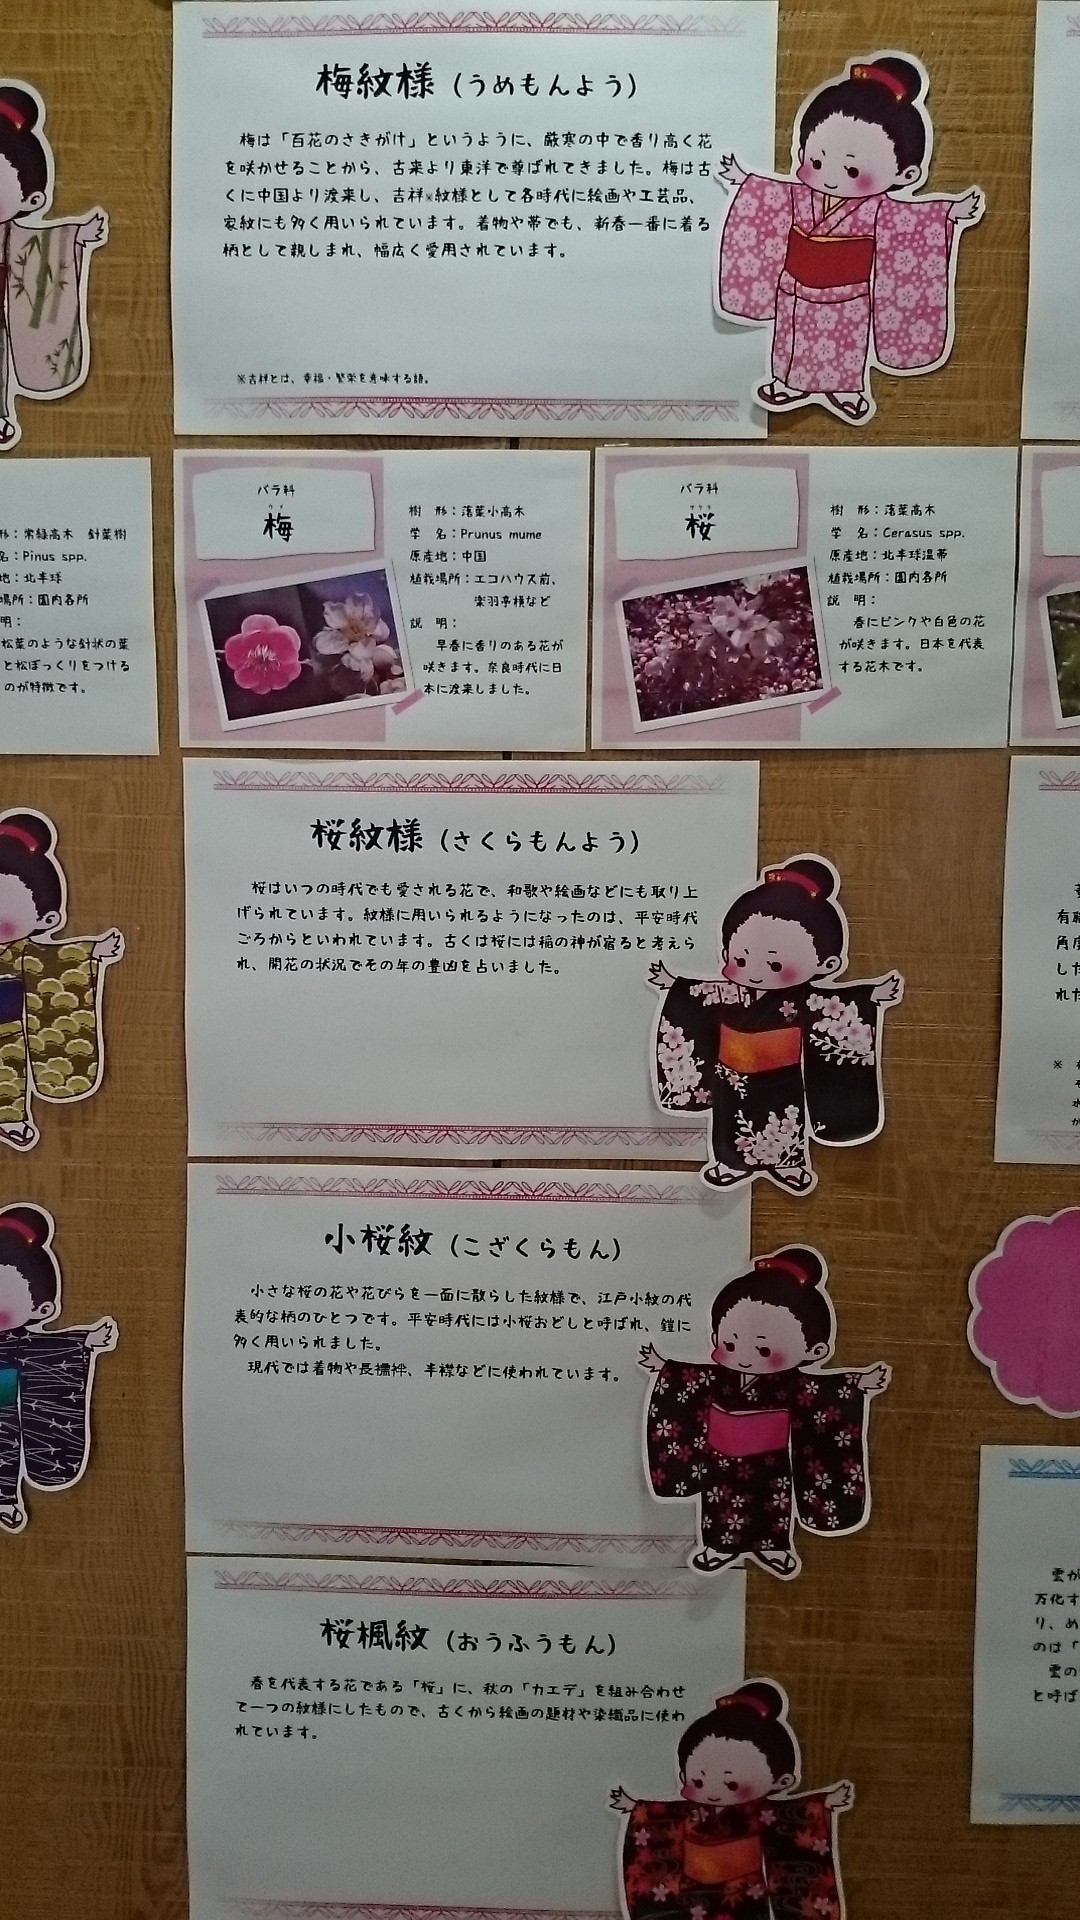 梅紋様（うめもんよう）
梅は「百花のさきがけ」というように、厳寒の中で香り高く花
を咲かせることから、古来より東洋で尊ばれてきました。梅は古
くに中国より渡来し、吉祥※紋様として各時代に絵画や工芸品、
家紋にも多く用いられています。着物や帯でも、新春一番に着る
柄として親しまれ、幅広く愛用されています。
※吉祥とは、幸福・繁栄を意味する語。
形：常緑高木　針葉樹
名：Pinus spp.
地：北半球
場所：園内各所
明：
松葉のような針状の葉
と松ぼっくりをつける
のが特徴です。
バラ科
ウメ
梅
樹　形：落葉小高木
学　名：Prunus mume
原産地：中国
植栽場所：エコハウス前、
楽羽亭横など
説　明：
早春に香りのある花が
咲きます。奈良時代に日
本に渡来しました。
バラ科
サクラ
桜
樹　形：落葉高木
学　名：Cerasus spp.
原産地：北半球温帯
植栽場所：園内各所
説　明：
春にピンクや白色の花
が咲きます。日本を代表
する花木です。
桜紋様（さくらもんよう）
桜はいつの時代でも愛される花で、和歌や絵画などにも取り上
げられています。紋様に用いられるようになったのは、平安時代
ごろからといわれています。古くは桜には稲の神が宿ると考えら
れ、開花の状況でその年の豊凶を占いました。
有職
角度
した
れた
小桜紋（こざくらもん）
小さな桜の花や花びらを一面に散らした紋様で、江戸小紋の代
表的な柄のひとつです。平安時代には小桜おどしと呼ばれ、鎧に
多く用いられました。
現代では着物や長襦袢、半襟などに使われています。
桜楓紋（おうふうもん）
春を代表する花である「桜」に、秋の「カエデ」を組み合わせ
て一つの紋様にしたもので、古くから絵画の題材や染織品に使わ
れています。
雲が
万化す
り、め
のは「
雲の
と呼ば